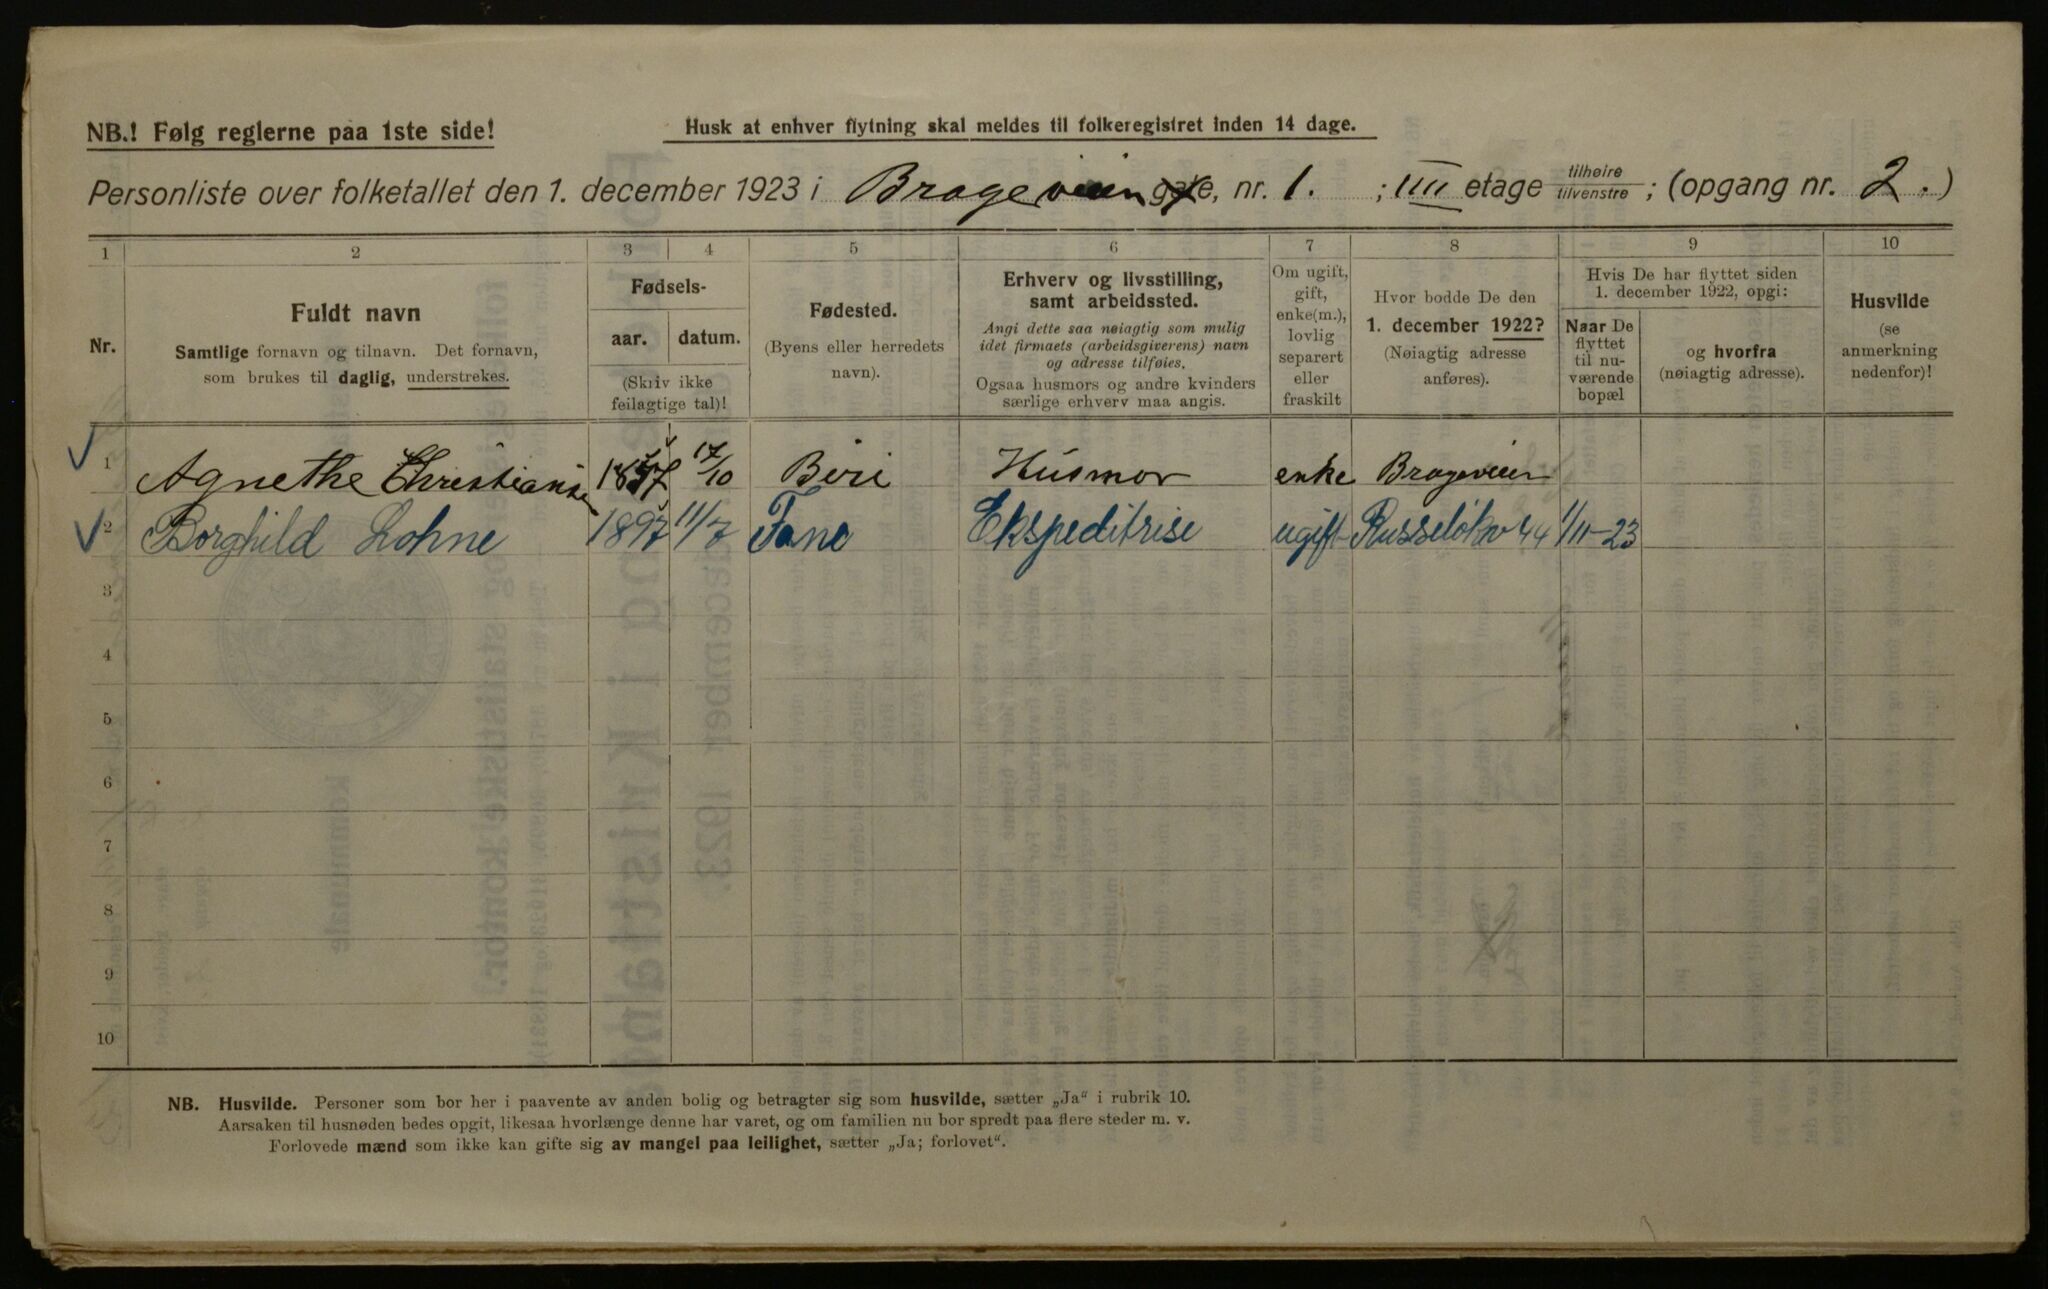 NB.! Følg reglerne paa 1ste side!
Husk at enhver flytning skal meldes til folkeregistret inden 14 dage.
Personliste over folketallet den 1. december 1923 i Brageveien gate, nr. 1. ; IIII etage tilhøire tilvenstre ; (opgang nr. 2.)
1 2 3 4 5 6 7 8 9 10
Nr.
Fuldt navn
Samtlige fornavn og tilnavn. Det fornavn,
som brukes til daglig, understrekes.
Fødsels-
aar. datum.
(Skriv ikke
feilagtige tal)!
Fødested.
(Byens eller herredets
navn).
Erhverv og livsstilling,
samt arbeidssted.
Angi dette saa nøiagtig som mulig
idet firmaets (arbeidsgiverens) navn
og adresse tilføies.
Ogsaa husmors og andre kvinders
særlige erhverv maa angis.
Om ugift,
gift,
enke(m.),
lovlig
separert
eller
fraskilt
Hvor bodde De den
1. december 1922?
(Nøiagtig adresse
anføres).
Hvis De har flyttet siden
1. december 1922, opgi:
Naar De
flyttet
til nu-
værende
bopæl
og hvorfra
(nøiagtig adresse).
Husvilde
(se
anmerkning
nedenfor)!
1 Agnethe Christianse 1857 17/10 Biri Husmor enke Brageveien
2 Borghild Lohne 1897 11/7 Fane Ekspeditrise ugift Russeløkv 44 1/11-23
3
4
5
6
7
8
9
10
NB. Husvilde. Personer som bor her i paavente av anden bolig og betragter sig som husvilde, sætter „Ja“ i rubrik 10.
Aarsaken til husnøden bedes opgit, likesaa hvorlænge denne har varet, og om familien nu bor spredt paa flere steder m. v.
Forlovede mænd som ikke kan gifte sig av mangel paa leilighet, sætter „Ja; forlovet“.